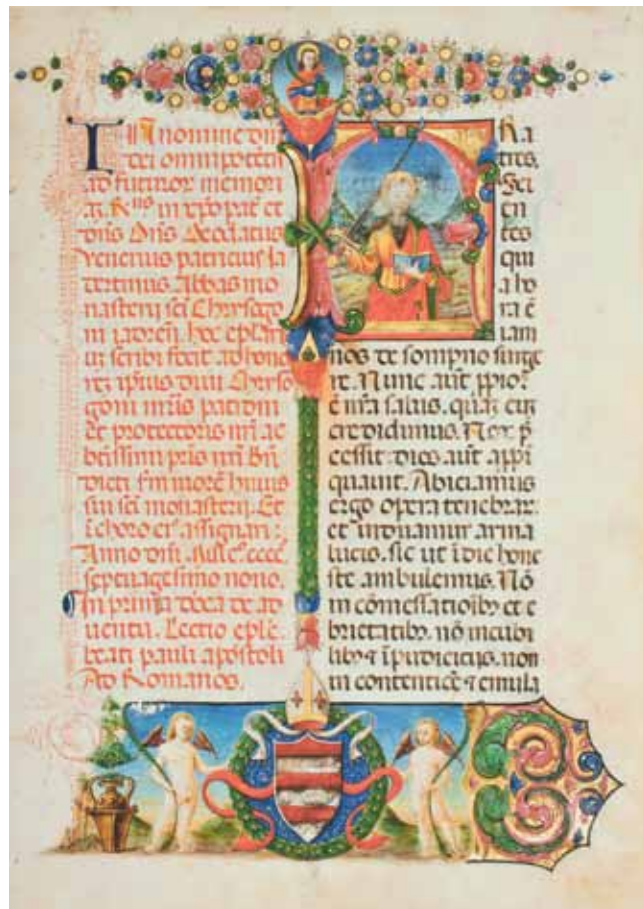 IN nomine dni
dei omnipotētis
ad futuror memori
az R^us in xpo pat et
dns Dns Deodatus
Venerius patricius Ia
dertinus. Abbas mo
nasterii sci Chrysogo
ni iadoreñ. hoc eplari
uz scribi fecit ad hono
rez ipsius diui Chryso
goni mris patroni
et protectoris nri ac
btissimi pris nri Bn̄
dicti fm morē huius
sui sci monasterii. Et
ī choro eī assignari:
Anno dni. Mill° cccc°
septuagesimo nono.
In prima dōca de ad
uentu. Lectio eple.
beati pauli apostoli
Ad Romanos.
FRa
tres.
Sci
en
tes
qui
a ho
ra ē
iam
nos de sompno surge
re. Nunc aūt ppior
ē nra salus. quaz cuz
credidimus. Nox p̄
cessit: dies aūt appī
quauit. Abiciamus
ergo opera tenebrar.
et induamur arma
lucis. sic ut ī die hone
ste ambulemus. Nō
in cōmessatiōibz et e
brietatibz. nō in cubi
libz et īpudicitiis. non
in contentiōe et emula